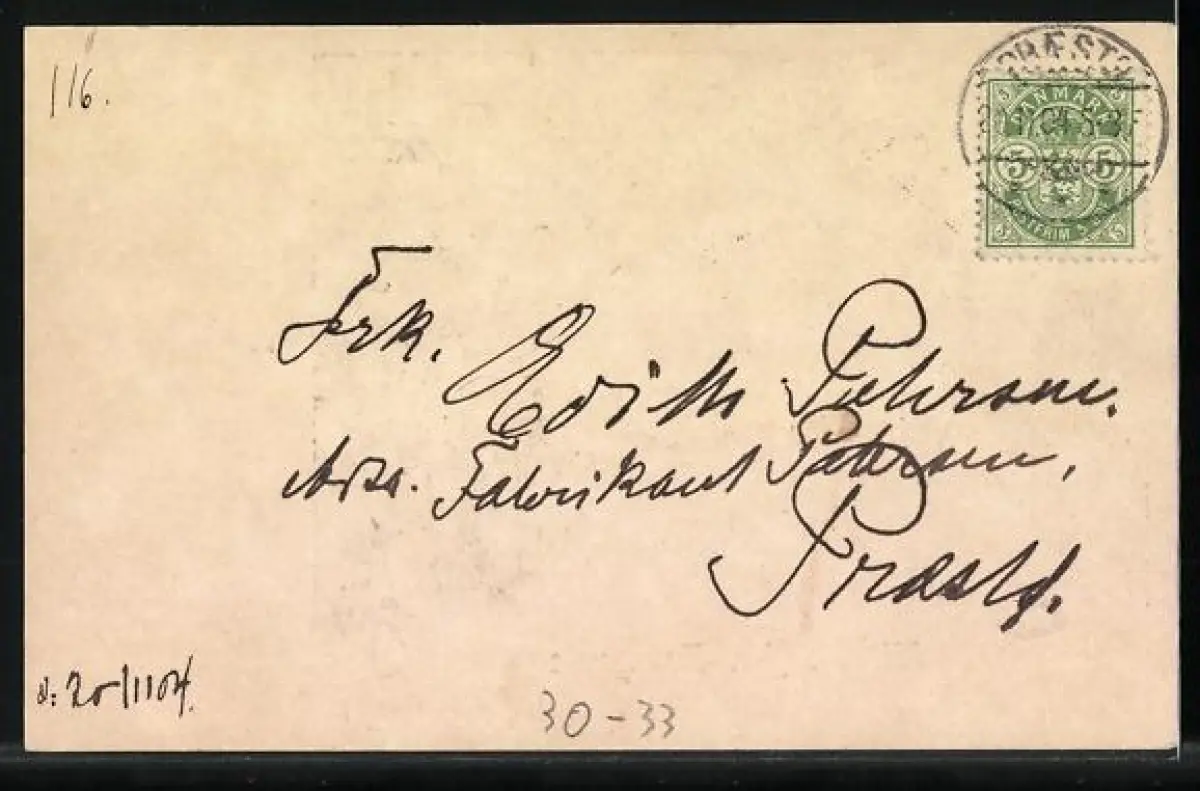 116.
PRÆSTØ
DANMARK
5 5
Frk.
Edith Petersen.
Adr. Fabrikant Petersen,
Præstø.
d: 20/11 04.
30-33